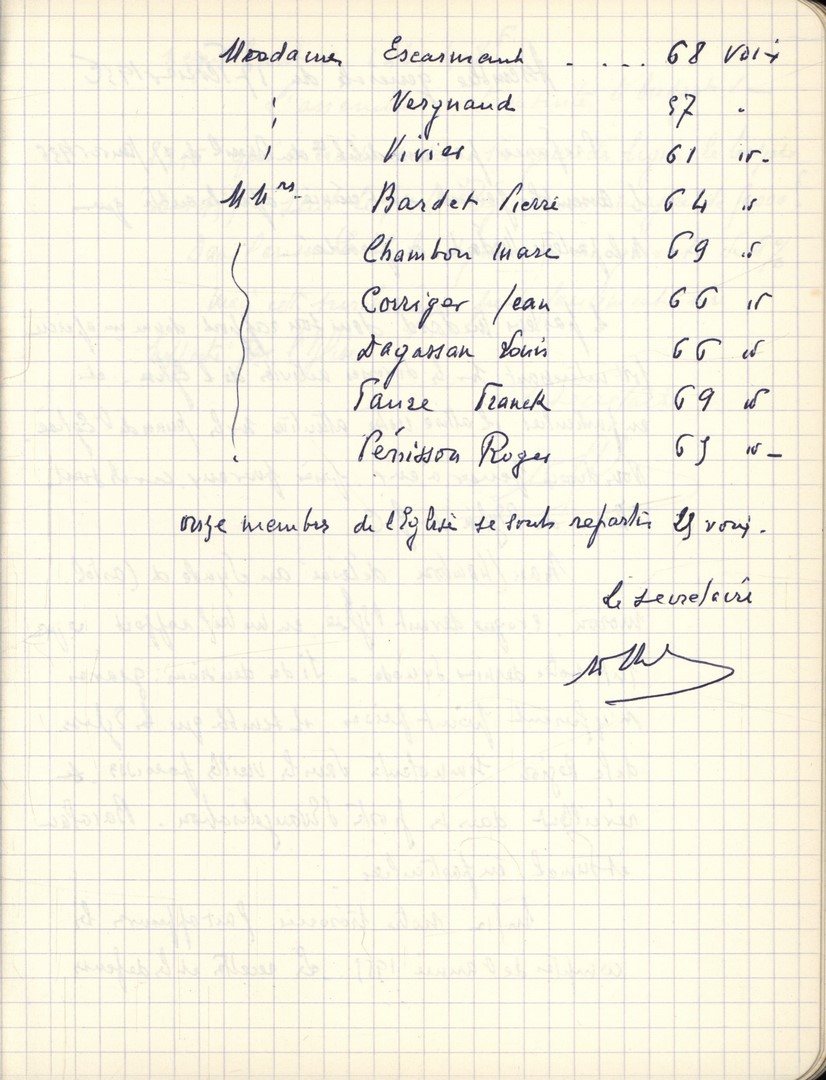 Mesdames Escarmant . . . . . 68 voix
" Vergnaud 57 "
" Vivier 61 id.
MM^rs. Bardet Pierre 64 id
Chambon Marc 69 id
Corriger Jean 66 id
Dagassan Louis 66 id
Tauze Franck 69 id
Pénisson Roger 65 id
onze membres de l'Eglise se sont repartis voix.
Le secretaire